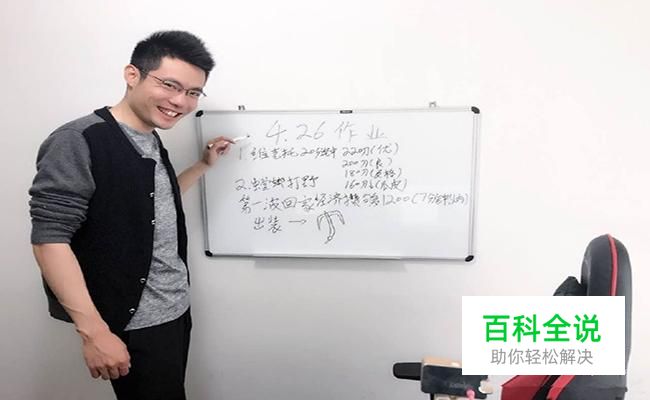 4.26 作业
1.维克托 20分钟 220刀(优)
200刀(良)
180刀(及格)
160刀(
2.螳螂打野
第一波回家经济攒够1200(7分钟内)
出装 →
百科全说
助你轻松解决